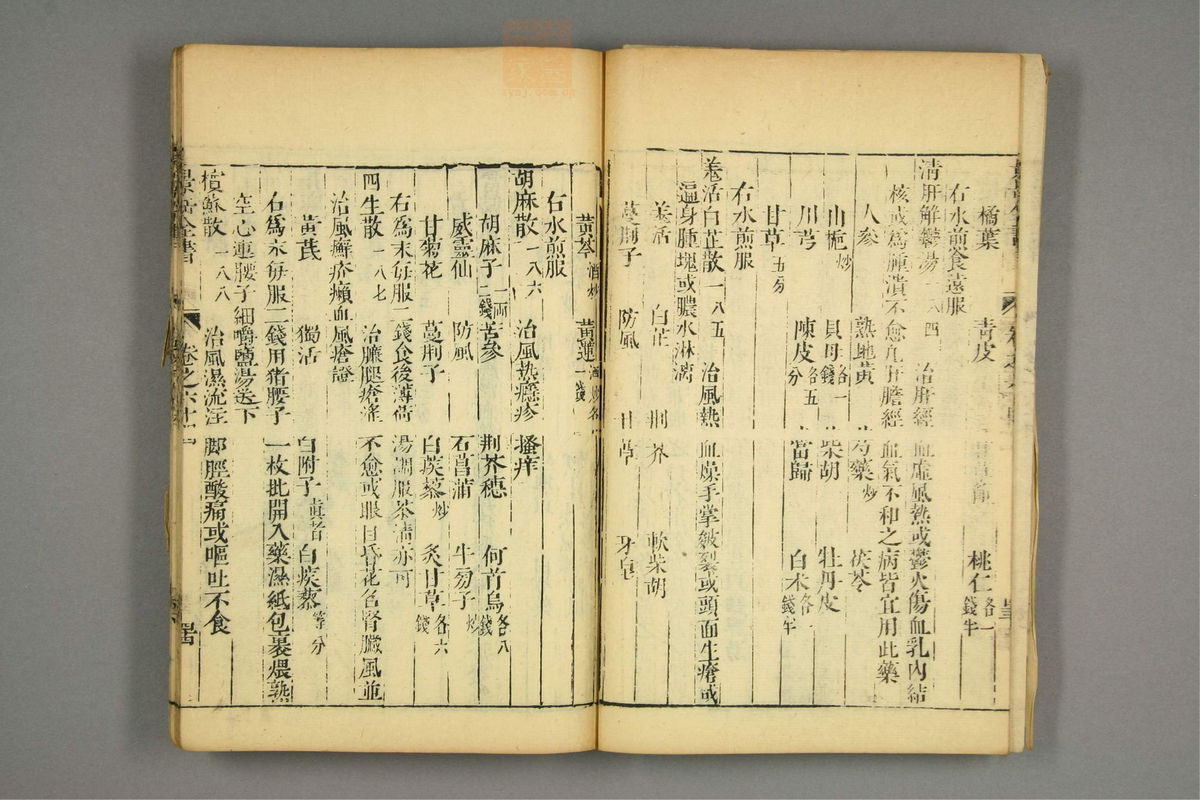 橘葉 青皮 桃仁各一錢半
右水煎食遠服
清肝解鬱湯一八四 治肝經血虛風熱或鬱火傷血乳內結
核或為腫潰不愈凡肝膽經血氣不和之病皆宜用此藥
人參 熟地黃 芍藥炒 茯苓
山梔炒 貝母各一錢 柴胡 牡丹皮
川芎 陳皮各五分 當歸 白朮各一錢半
甘草五分
右水煎服
羗活白芷散一八五 治風熱血燥手掌皴裂或頭面生瘡或
遍身腫塊或膿水淋漓
羗活 白芷 荆芥 軟柴胡
蔓荆子 防風 甘草 牙皂
黃芩酒炒 黃連酒炒各一錢
右水煎服
胡麻散一八六 治風熱癮疹搔痒
胡麻子一兩二錢 苦參 荆芥穗 何首烏各八錢
威靈仙 防風 石菖蒲 牛旁子炒
甘菊花 蔓荆子 白蒺藜炒 炙甘草各六錢
右為末每服二錢食後薄荷湯調服茶淸亦可
四生散一八七 治臁腿瘡痒不愈或眼目昏花名腎臟風並
治風癬疥癩血風瘡證
黃芪 獨活 白附子 白蒺藜等分
右為末每服二錢用猪腰子一枚批開入藥濕紙包裹煨熟
空心連腰子細嚼鹽湯送下
檳蘇散一八八 治風濕流注脚脛酸痛或嘔吐不食
景岳全書 卷之六十